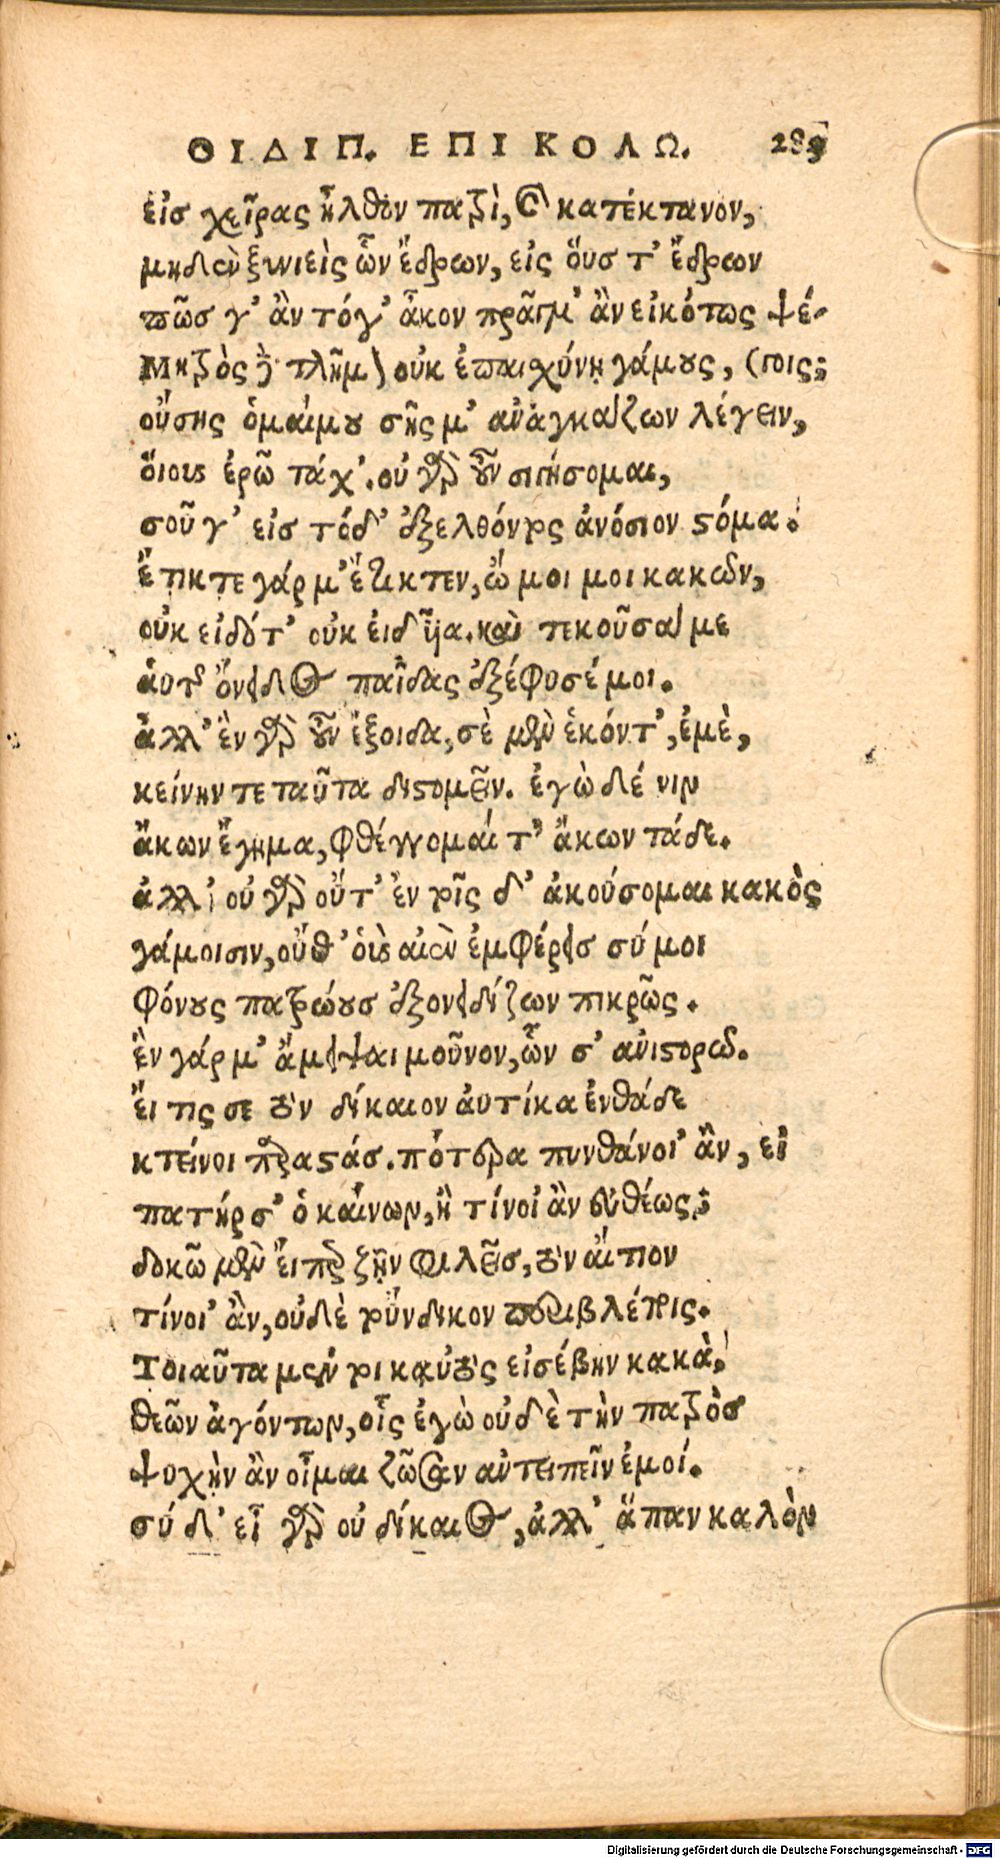 ΟΙΔΙΠ. ΕΠΙ ΚΟΛΩ. 289
εἰσ χεῖρας ἦλθον πατρὶ, καὶ κατέκτανον,
μηδὲν ξυνιεὶς ὧν ἔδρων, εἰς οὕσ τ' ἔδρων
πῶσ γ' ἂν τόγ' ἆκον πρᾶγμ' ἂν εἰκότως ψέ-
Μητρὸς δὲ τλῆμον οὐκ ἐπαισχύνῃ γάμους, (γοις;
οὔσης ὁμαίμου σῆς μ' ἀναγκάζων λέγειν,
ὅιους ἐρῶ τάχ'. οὐ γὰρ οὖν σιγήσομαι,
σοῦ γ' εἰσ τόδ' ἐξελθόντος ἀνόσιον στόμα.
ἔτικτε γάρ μ' ἔτικτεν, ὤ μοι μοι κακῶν,
οὐκ εἰδότ' οὐκ ἐιδυῖα. καὶ τεκοῦσά με
ἁυτῆς ὄνειδος παῖδας ἐξέφυσέ μοι.
ἀλλ' ἓν γὰρ οὖν ἔξοιδα, σὲ μὲν ἑκόντ', ἐμὲ,
κείνην τε ταῦτα δυστομεῖν. ἐγὼ δέ νιν
ἄκων ἔγημα, φθέγγομαί τ' ἄκων τάδε.
ἀλλ' οὐ γὰρ οὔτ' ἐν τοῖς δ' ἀκούσομαι κακὸς
γάμοισιν, οὔθ' ὁὺς αἰὲν ἐμφέρεισ σύ μοι
φόνους πατρώουσ ἐξονειδίζων πικρῶς.
ἓν γάρ μ' ἄμειψαι μοῦνον, ὧν σ' ἀνιστορῶ.
ἔι τις σε τὸν δίκαιον ἀυτίκα ἐνθάδε
κτείνοι παραστάσ. πότερα πυνθάνοι' ἂν, εἰ
πατήρ σ' ὁ καίνων, ἢ τίνοι' ἂν εὐθέως;
δοκῶ μὲν ἔιπερ ζῆν φιλεῖσ, τὸν ἄιτιον
τίνοι' ἂν, οὐδὲ τοὔνδικον περιβλέποις.
Τοιαῦτα μέν τοι καὐτὸς εἰσέβην κακὰ,
θεῶν ἀγόντων, οἷς ἐγὼ οὐδὲ τὴν πατρὸσ
ψυχὴν ἂν οἶμαι ζῶσαν αὐτειπεῖν ἐμοί.
σύ δ' εἶ γὰρ οὐ δίκαιος, ἀλλ' ἅπαν καλὸν
Digitalisierung gefördert durch die Deutsche Forschungsgemeinschaft - DFG